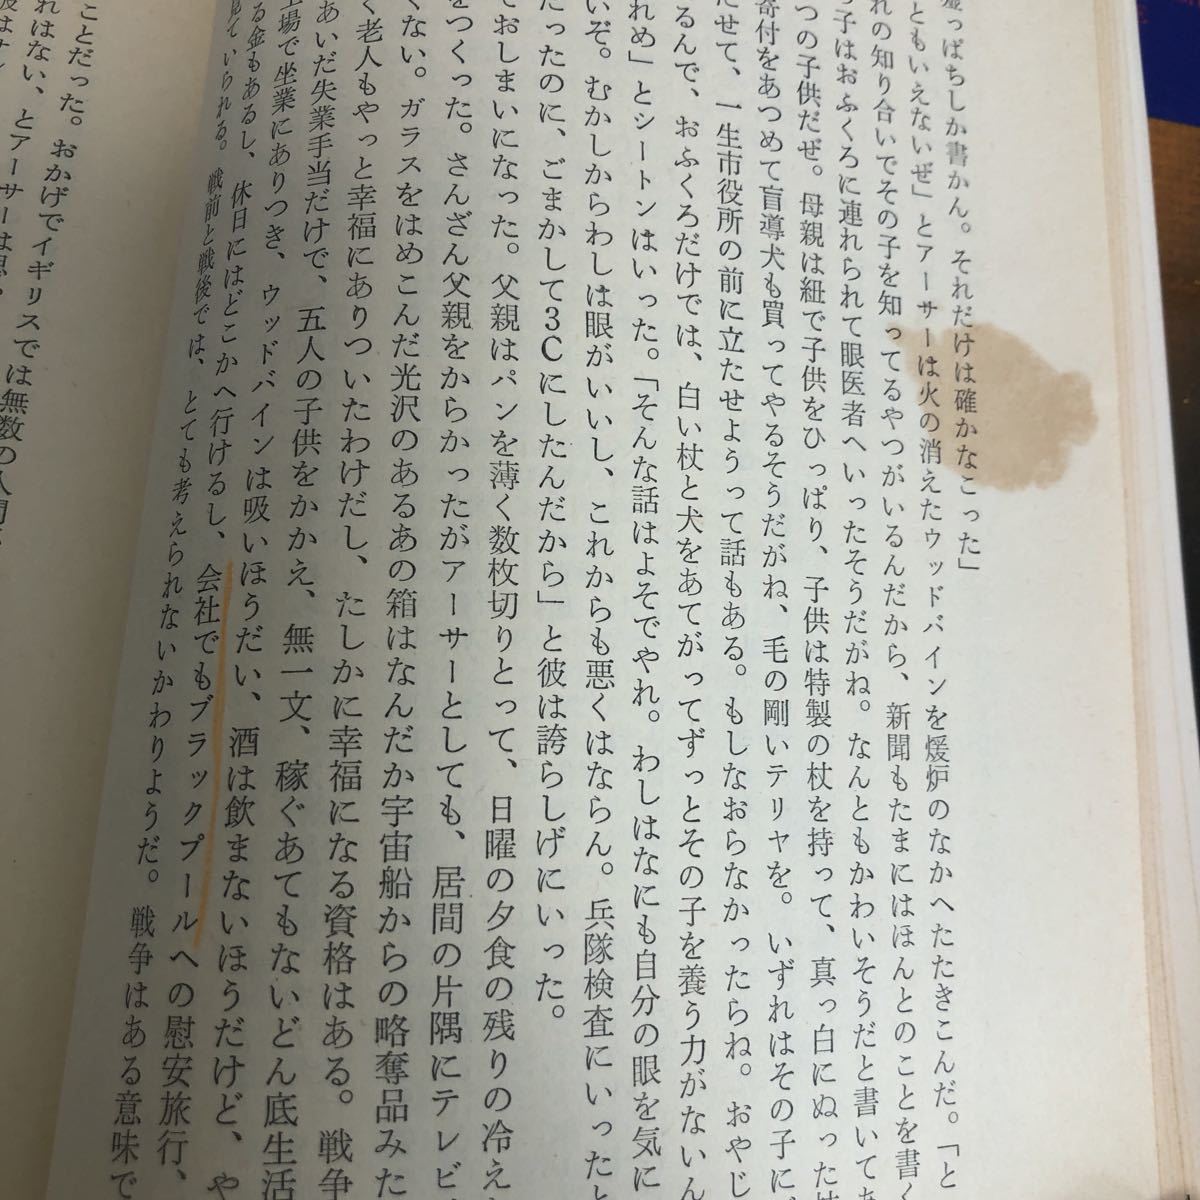 嘘っぱちしか書かん。それだけは確かなこった」
ともいえないぜ」とアーサーは火の消えたウッドバインを煖炉のなかへたたきこんだ。「と
れの知り合いでその子を知ってるやつがいるんだから、新聞もたまにはほんとのことを書く
っ子はおふくろに連れられて眼医者へいったそうだがね。なんともかわいそうだと書いてあ
つの子供だぜ。母親は紐で子供をひっぱり、子供は特製の杖を持って、真っ白にぬった
寄付をあつめて盲導犬も買ってやるそうだがね、毛の剛いテリヤを。いずれはその子に
たせて、一生市役所の前に立たせようって話もある。もしなおらなかったらね。おやじ
るんで、おふくろだけでは、白い杖と犬をあてがってずっとその子を養う力がないん
れめ」とシートンはいった。「そんな話はよそでやれ。わしはなにも自分の眼を気に
いぞ。むかしからわしは眼がいいし、これからも悪くはならん。兵隊検査にいったと
たったのに、ごまかして3Cにしたんだから」と彼は誇らしげにいった。
ておしまいになった。父親はパンを薄く数枚切りとって、日曜の夕食の残りの冷え
をつくった。さんざん父親をからかったがアーサーとしても、居間の片隅にテレビ
くない。ガラスをはめこんだ光沢のあるあの箱はなんだか宇宙船からの略奪品みた
く老人もやっと幸福にありついたわけだし、たしかに幸福になる資格はある。戦争
あいだ失業手当だけで、五人の子供をかかえ、無一文、稼ぐあてもないどん底生活
場で坐業にありつき、ウッドバインは吸いほうだい、酒は飲まないほうだけど、や
る金もあるし、休日にはどこかへ行けるし、会社でもブラックプールへの慰安旅行、
見ていられる。戦前と戦後では、とても考えられないかわりようだ。戦争はある意味で
ことだった。おかげでイギリスでは無数の人間
れはない、とアーサーは思